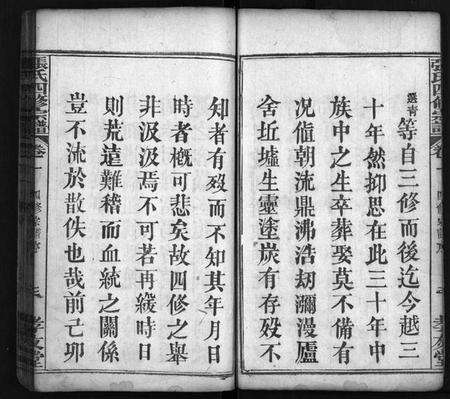 選青等自三修而後迄今越三
十年然抑思在此三十年中
族中之生卒葬娶莫不備有
况值朝流鼎沸浩劫瀰漫廬
舍坵墟生靈塗炭有存歿不
知者有歿而不知其年月日
時者概可悲矣故四修之舉
非汲汲焉不可若再緩時日
則荒遠難稽而血統之關係
豈不流於散佚也哉前己卯
張氏四修宗譜 卷一
孝友堂